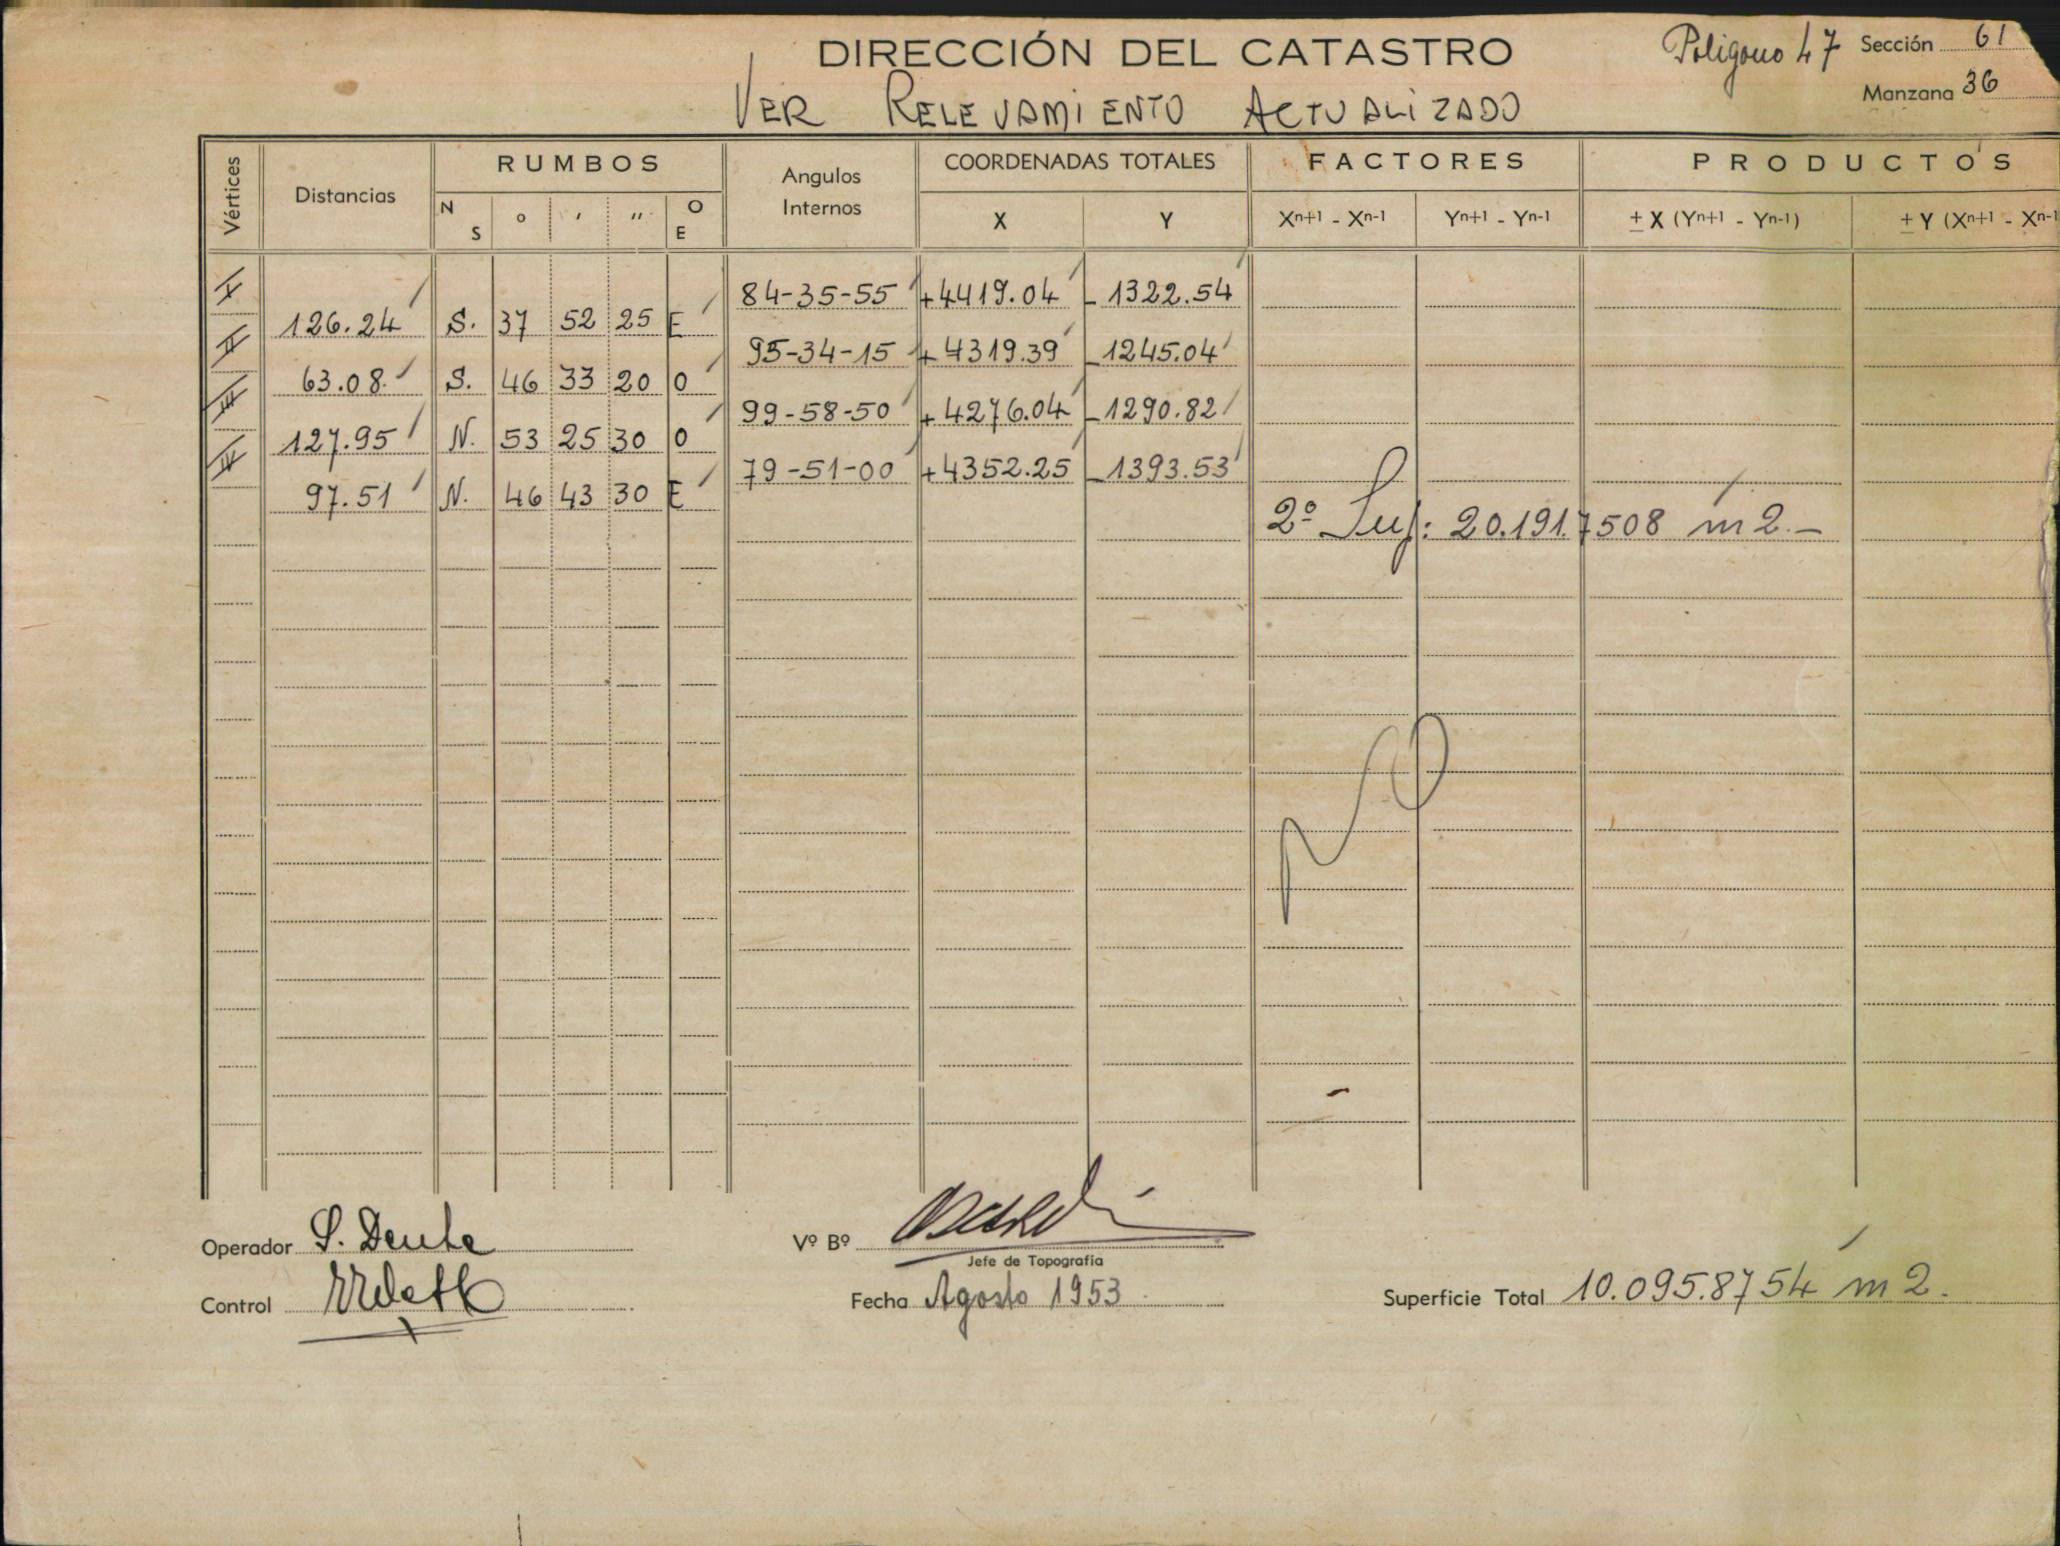 DIRECCIÓN DEL CATASTRO
Poligono 47 Sección 61
VER RELEVAMIENTO ACTUALIZADO
Manzana 36
Vértices Distancias RUMBOS Angulos Internos COORDENADAS TOTALES FACTORES PRODUCTOS
N S ° ' " O E X Y Xn+1 - Xn-1 Yn+1 - Yn-1 ± X (Yn+1 - Yn-1) ± Y (Xn+1 - Xn-1
I 84-35-55 +4419.04 -1322.54
126.24 S. 37 52 25 E
II 95-34-15 +4319.39 -1245.04
63.08 S. 46 33 20 O
III 99-58-50 +4276.04 -1290.82
127.95 N. 53 25 30 O
IV 79-51-00 +4352.25 -1393.53
97.51 N. 46 43 30 E
2º Sup: 20.191.7508 m2.-
Operador S. Deute
Vº Bº
Jefe de Topografía
Control
Fecha Agosto 1953
Superficie Total 10.095.8754 m2.